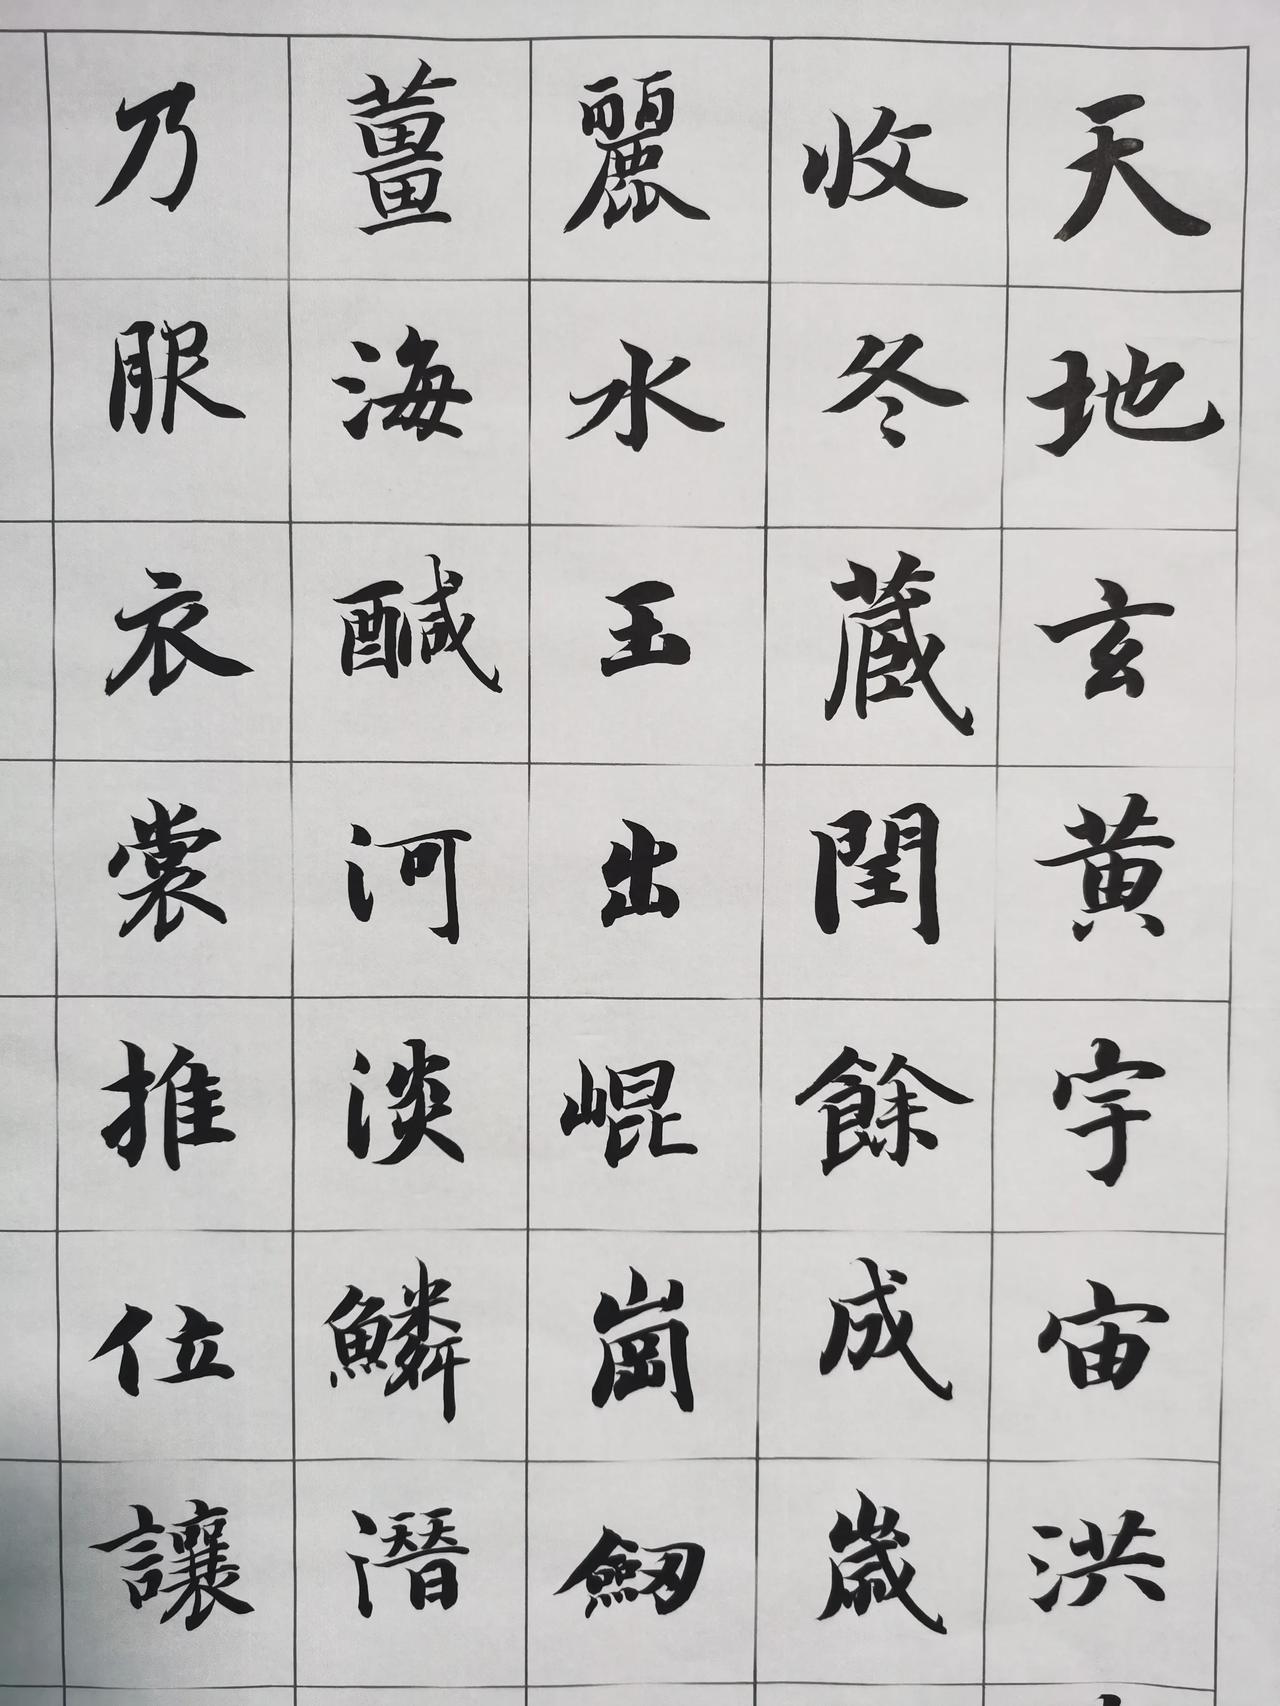 天地玄黄宇宙洪
收冬蔵閏餘成歲
麗水玉出崐崗劒
薑海醎河淡鱗潛
乃服衣裳推位讓